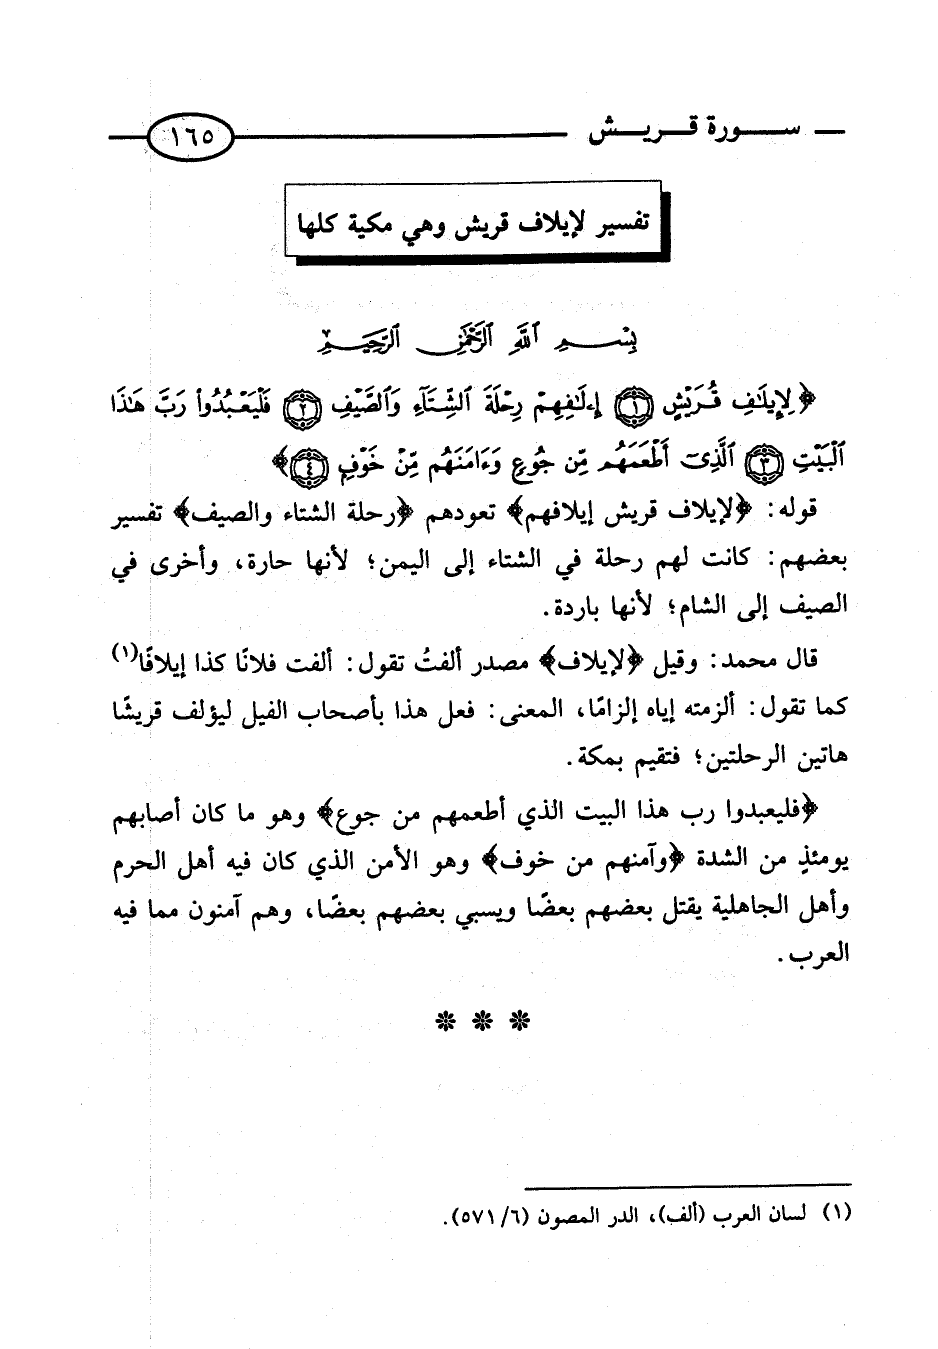 سورة قريش ١٦٥
تفسير لإيلاف قريش وهي مكية كلها
بِسْمِ ٱللَّهِ ٱلرَّحْمَٰنِ ٱلرَّحِيمِ
﴿لِإِيلَٰفِ قُرَيْشٍ ١ إِۦلَٰفِهِمْ رِحْلَةَ ٱلشِّتَآءِ وَٱلصَّيْفِ ٢ فَلْيَعْبُدُوا۟ رَبَّ هَٰذَا
ٱلْبَيْتِ ٣ ٱلَّذِىٓ أَطْعَمَهُم مِّن جُوعٍ وَءَامَنَهُم مِّنْ خَوْفٍۭ ٤﴾
قوله: ﴿لإيلاف قريش إيلافهم﴾ تعودهم ﴿رحلة الشتاء والصيف﴾ تفسير
بعضهم: كانت لهم رحلة في الشتاء إلى اليمن؛ لأنها حارة، وأخرى في
الصيف إلى الشام؛ لأنها باردة.
قال محمد: وقيل ﴿لإيلاف﴾ مصدر ألفتُ تقول: ألفت فلانًا كذا إيلافًا(١)
كما تقول: ألزمته إياه إلزامًا، المعنى: فعل هذا بأصحاب الفيل ليؤلف قريشًا
هاتين الرحلتين؛ فتقيم بمكة.
﴿فليعبدوا رب هذا البيت الذي أطعمهم من جوع﴾ وهو ما كان أصابهم
يومئذٍ من الشدة ﴿وآمنهم من خوف﴾ وهو الأمن الذي كان فيه أهل الحرم
وأهل الجاهلية يقتل بعضهم بعضًا ويسبي بعضهم بعضًا، وهم آمنون مما فيه
العرب.
* * *
(١) لسان العرب (ألف)، الدر المصون (٥٧١/٦).